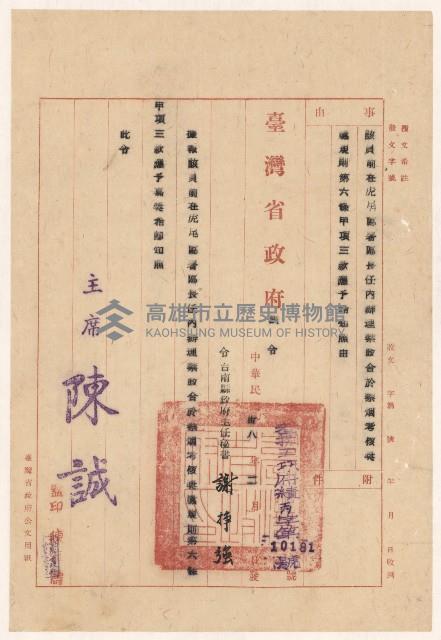 覆文希註
發文字號
事由
該員前在虎尾區署區長任內辦理禁政合於禁烟考核獎
懲規則第六條甲項三款應予嘉獎希知照由
附件
收文 字第 號 年 月 日收到
臺灣省政府 令
中華民國卅八年 二月
10181
號
令台南縣政府主任秘書 謝掙強
據報該員前在虎尾區署區長任內辦理禁政合於禁烟考核獎懲規則第六條
甲項三款應予嘉獎希即知照
此令
主席 陳誠
臺灣省政府公文用紙
高雄市立歷史博物館
KAOHSIUNG MUSEUM OF HISTORY